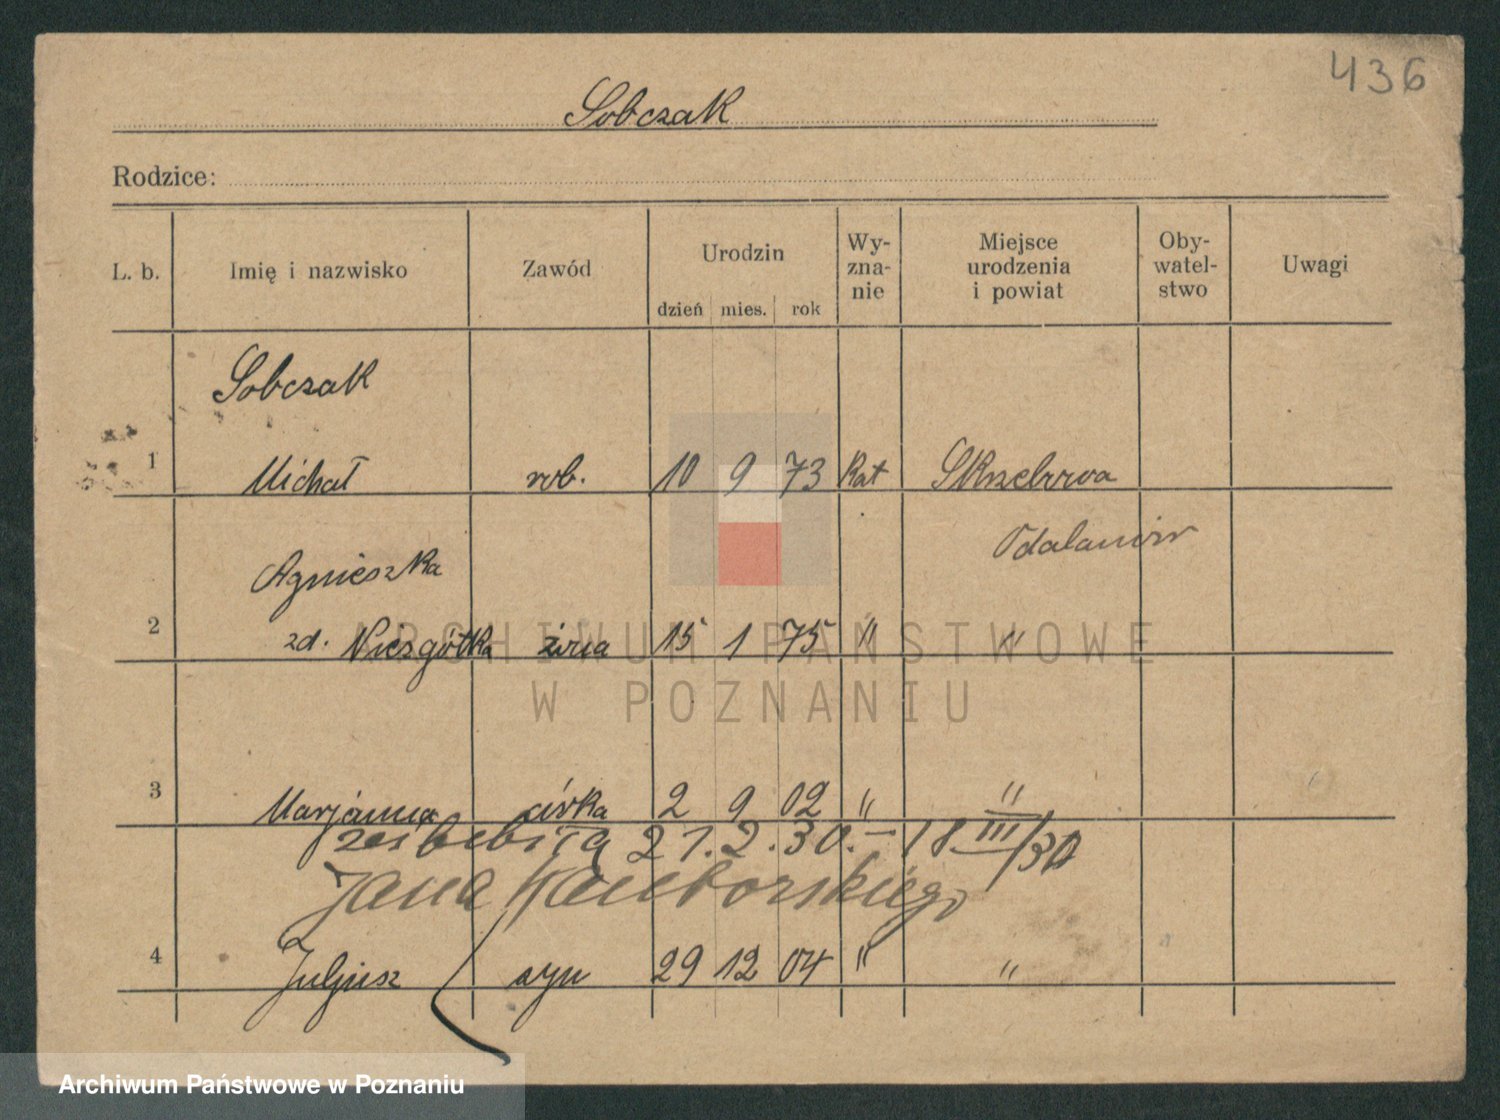 436
Sobczak
Rodzice:
L. b. Imię i nazwisko Zawód Urodzin dzień mies. rok Wy-zna-nie Miejsce urodzenia i powiat Oby-watel-stwo Uwagi
Sobczak
1 Michał rob. 10 9 73 kat
Odalanów
Agnieszka
2 zd. Niezgótka żona 15 1 75 " "
ARCHIWUM PAŃSTWOWE
W POZNANIU
3 Marjanna córka 2 9 02 " "
21.2.30.- 18 III/30
Jana
4 Juljusz syn 29 12 04 " "
Archiwum Państwowe w Poznaniu